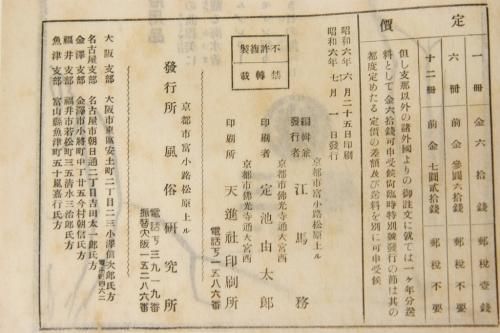 定價
一冊 金六拾錢 郵稅壹錢
六冊 前金參圓六拾錢 郵稅不要
十二冊 前金七圓貳拾錢 郵稅不要
但し支那以外の諸外國よりの御註文に就ては一ヶ年分送
料として金六拾錢可申受候尙臨時特別號發行の節は其の
都度定めたる定價の差額及び送料を別に可申受候
昭和六年六月二十五日印刷
昭和六年七月一日發行
不許複製
禁轉載
京都市富小路松原上ル
編輯兼發行者 江馬務
京都市佛光寺通大宮西
印刷者 定池由太郎
京都市佛光寺通大宮西
印刷所 天進社印刷所
電話下一五八六番
京都市富小路松原上ル
發行所 風俗研究所
電話下三九一九番
振替大阪一五二八六番
大阪支部 大阪市東區安土町二丁目二三小澤信次郎氏方
名古屋支部 名古屋市朝日通二丁目吉田太一郎氏方
金澤支部 金澤市小將町中丁廿五今村朝信氏方
福井支部 福井市若松町三五清水三治郎氏方
魚津支部 富山縣魚津町五十嵐嘉行氏方